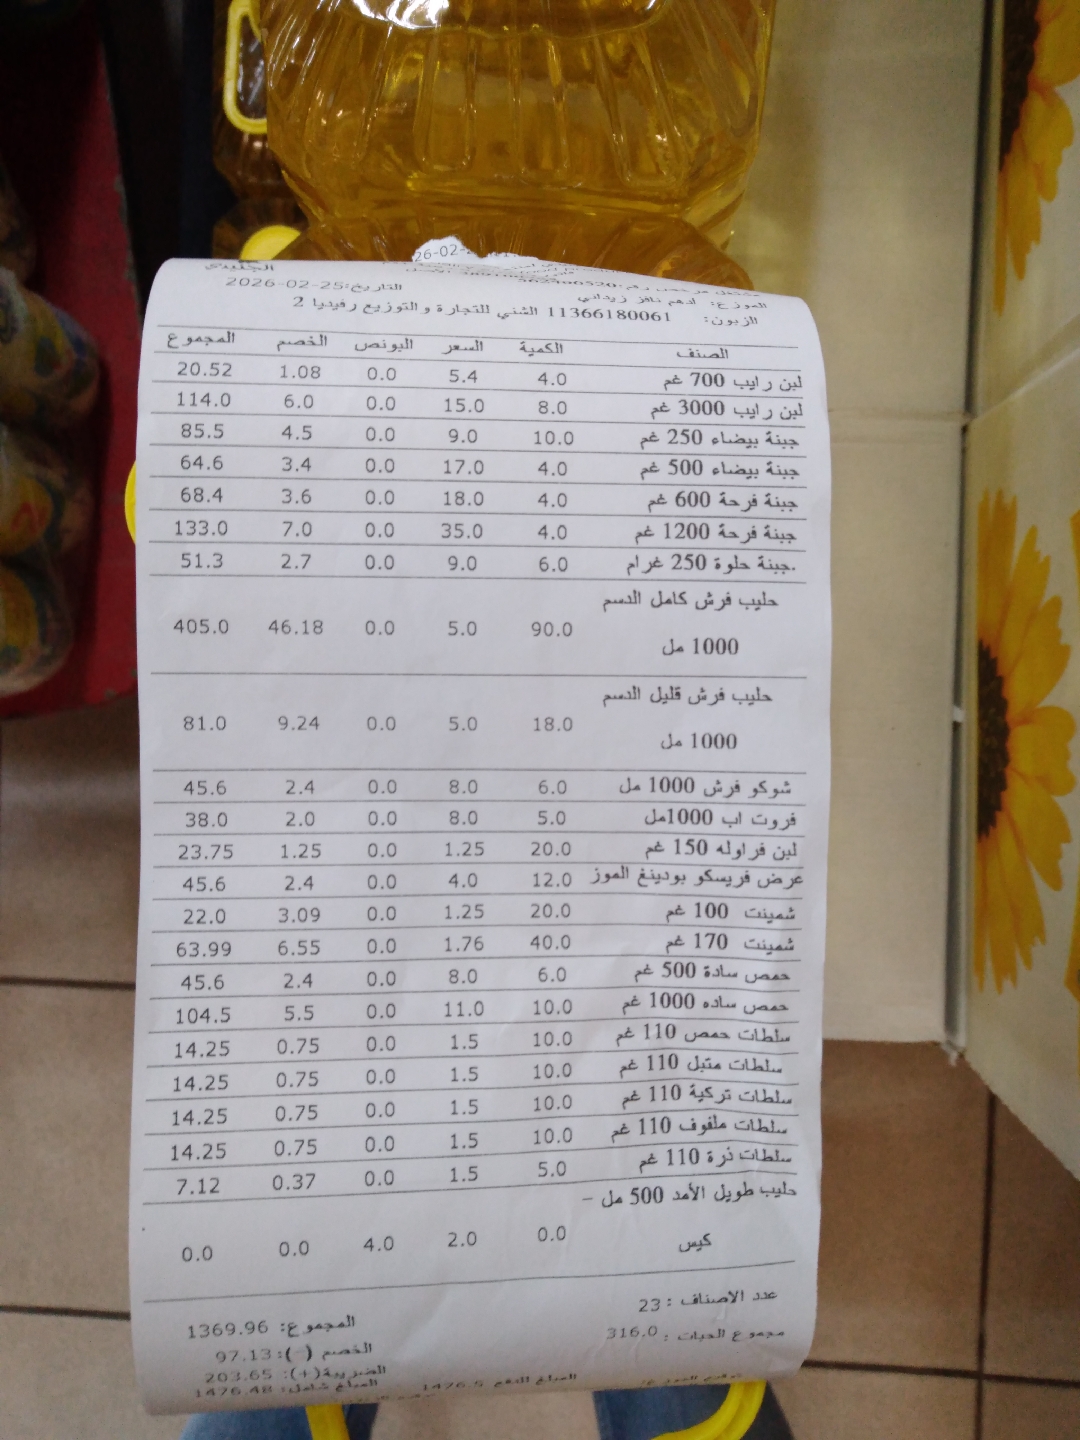 26-02-2
الجنيدي
التاريخ:2026-02-25
الموزع: ادهم نافز زيداني
الزبون: 11366180061 الشني للتجارة و التوزيع رفيديا 2
الصنف الكمية السعر البونص الخصم المجموع
لبن رايب 700 غم 4.0 5.4 0.0 1.08 20.52
لبن رايب 3000 غم 8.0 15.0 0.0 6.0 114.0
جبنة بيضاء 250 غم 10.0 9.0 0.0 4.5 85.5
جبنة بيضاء 500 غم 4.0 17.0 0.0 3.4 64.6
جبنة فرحة 600 غم 4.0 18.0 0.0 3.6 68.4
جبنة فرحة 1200 غم 4.0 35.0 0.0 7.0 133.0
.جبنة حلوة 250 غرام 6.0 9.0 0.0 2.7 51.3
حليب فرش كامل الدسم
1000 مل 90.0 5.0 0.0 46.18 405.0
حليب فرش قليل الدسم
1000 مل 18.0 5.0 0.0 9.24 81.0
شوكو فرش 1000 مل 6.0 8.0 0.0 2.4 45.6
فروت اب 1000مل 5.0 8.0 0.0 2.0 38.0
لبن فراوله 150 غم 20.0 1.25 0.0 1.25 23.75
عرض فريسكو بودينغ الموز 12.0 4.0 0.0 2.4 45.6
شمينت 100 غم 20.0 1.25 0.0 3.09 22.0
شمينت 170 غم 40.0 1.76 0.0 6.55 63.99
حمص سادة 500 غم 6.0 8.0 0.0 2.4 45.6
حمص ساده 1000 غم 10.0 11.0 0.0 5.5 104.5
سلطات حمص 110 غم 10.0 1.5 0.0 0.75 14.25
سلطات متبل 110 غم 10.0 1.5 0.0 0.75 14.25
سلطات تركية 110 غم 10.0 1.5 0.0 0.75 14.25
سلطات ملفوف 110 غم 10.0 1.5 0.0 0.75 14.25
سلطات ذرة 110 غم 5.0 1.5 0.0 0.37 7.12
حليب طويل الأمد 500 مل -
كيس 0.0 2.0 4.0 0.0 0.0
عدد الاصناف : 23
مجموع الحبات : 316.0
المجموع: 1369.96
الخصم (-): 97.13
الضريبة(+): 203.65
المبلغ شامل: 1476.48
المبلغ الدفع 1476.5